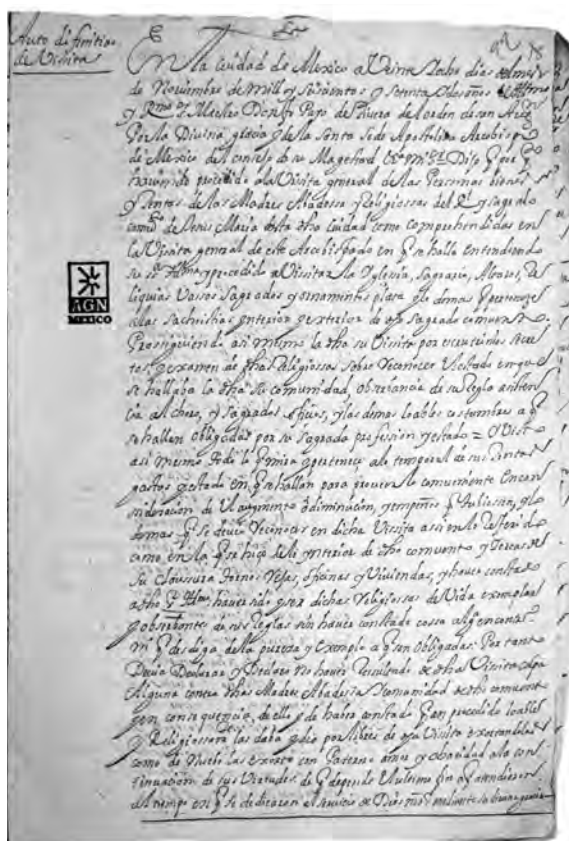 Auto difinitivo
de Visita
En la ciudad de Mexico a Veinte y ocho dias del mes
de Noviembre de mill y seiscientos y setenta y dos años el
y Rmo Sr Maestro Don fr Payo de Rivera del orden de san
Por la Divina gracia y de la Santa Sede Apostolica Arcobispo
de Mexico del consejo de su Magestad Dijo q por qto
haviendo procedido a la Visita general de las Personas bienes
y Rentas de las Madres Abadessa y Religiossas del Rl y sagrado
comto de Jesus Maria desta dha ciudad como comprehendidas en
la Visita general de este Arcobispado en q se halla entendiendo
su y procedido a Visitar la Yglesia, Sagrario, Altares, Re
liquias Vassos Sagrados y ornamentos plata y lo demas q pertenese
a las sachristias ynterior y exterior de dho sagrado comvento
Prosiguiendo asi mismo la dha su Visita por escrutinio secre
to, y examen de dhas Religiossas sobre reconocer el estado en que
se hallaba la dha su comunidad, observancia de su Regla asisten
cia al choro, y sagrados oficios, y las demas loables costumbres a q
se hallen obligadas por su sagrada profession y estado =
asi mismo todo lo q mira y pertenece a lo temporal de sus Rentas
gastos y estado en q se hallan para proveer lo comveniente en con
sideracion de el augmento o diminucion, y empeños q tubiesen, y lo
demas q se deve reconocer en dicha Vissita assi en lo
como en la q se hiço de lo ynterior de dho comvento y
su Claussura Tornos Rejas, ofisinas y Viviendas, y haver constado
a dho haver sido y ser dichas Religiossas de Vida exemplar
y observantes de sus Reglas sin haver constado cossa alguna en con
q desdiga de la pureza y exemplo a q son obligadas: Por tanto
Devia Declarar y Declaro no haver resultado de dha Visita culpa
Alguna contra dhas Madre Abadessa y comunidad de dho comvento
y en consequencia de ello y de haver constado q an procedido loable
y Religiossamte las daba y dio por libres de dha Visita exortandoles
como de nuevo las exorta con Paterno amor y charidad a la con
tinuacion de sus Virtudes, de q depende el ultimo fin a q atendieron
al tiempo en q se dedicaron al servicio de Dios mediante su buena
AGN
MEXICO